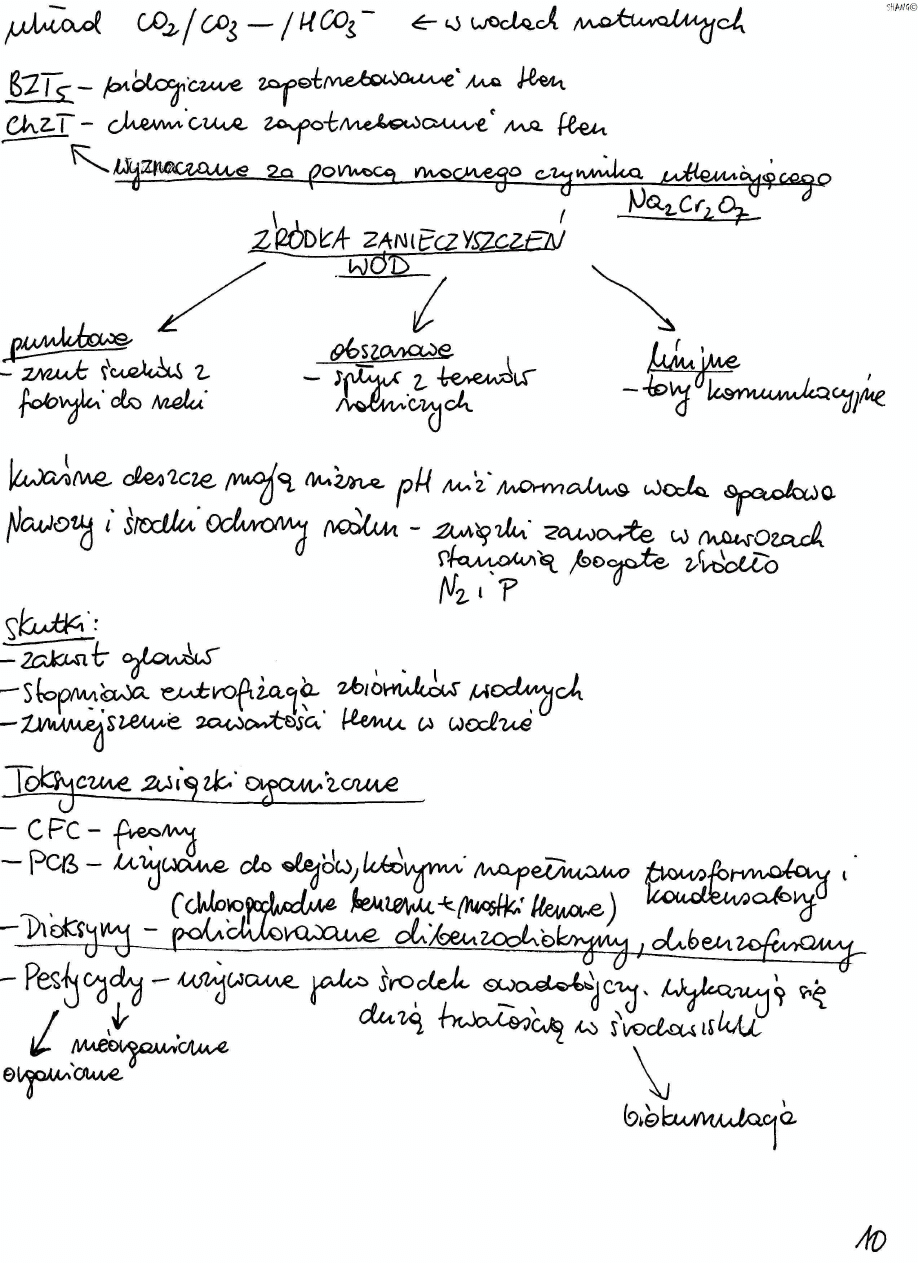 SHANG©
układ CO₂/CO₃—/HCO₃⁻ ← w wodach naturalnych
BZT₅ – biologiczne zapotrzebowanie na tlen
ChZT – chemiczne zapotrzebowanie na tlen
wyznaczane za pomocą mocnego czynnika utleniającego
Na₂Cr₂O₇
ŹRÓDŁA ZANIECZYSZCZEŃ
WÓD
punktowe
- zrzut ścieków z
fabryki do rzeki
obszarowe
- spływ z terenów
rolniczych
linijne
- tory komunikacyjne
kwaśne deszcze mają niższe pH niż normalna woda opadowa
Nawozy i środki ochrony roślin – związki zawarte w nawozach
stanowią bogate źródło
N₂ i P
skutki:
- zakwit glonów
- stopniowa eutrofizacja zbiorników wodnych
- zmniejszenie zawartości tlenu w wodzie
Toksyczne związki organiczne
- CFC – freony
- PCB – używane do olejów, którymi napełniano transformatory i
kondensatory
(chloropochodne benzenu + mostki tlenowe)
- Dioksyny – polichlorowane dibenzodioksyny, dibenzofurany
- Pestycydy – używane jako środek owadobójczy. Wykazują się
dużą trwałością w środowisku
nieorganiczne
organiczne
biokumulacja
10